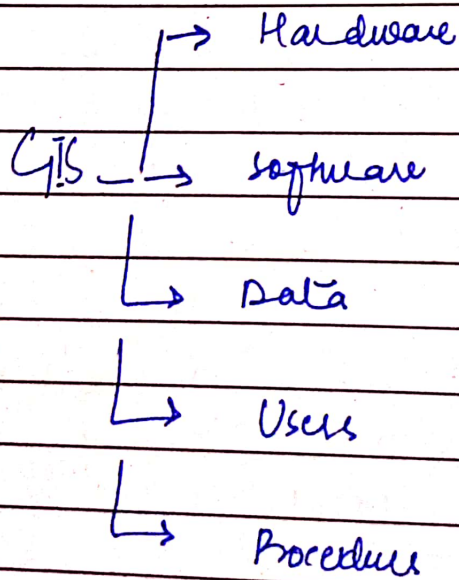 Hardware
GIS → software
Data
Users
Procedures